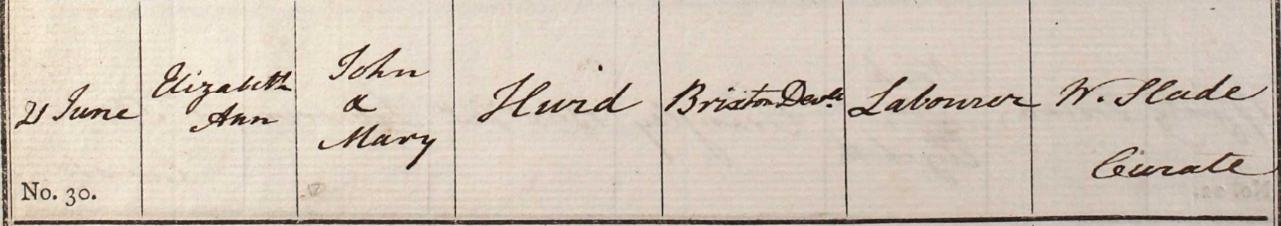 21 June
Elizabeth
Ann
John
&
Mary
Hurd
Brixton Dev.ll
Labourer
W. Slade
Curate
No. 30.